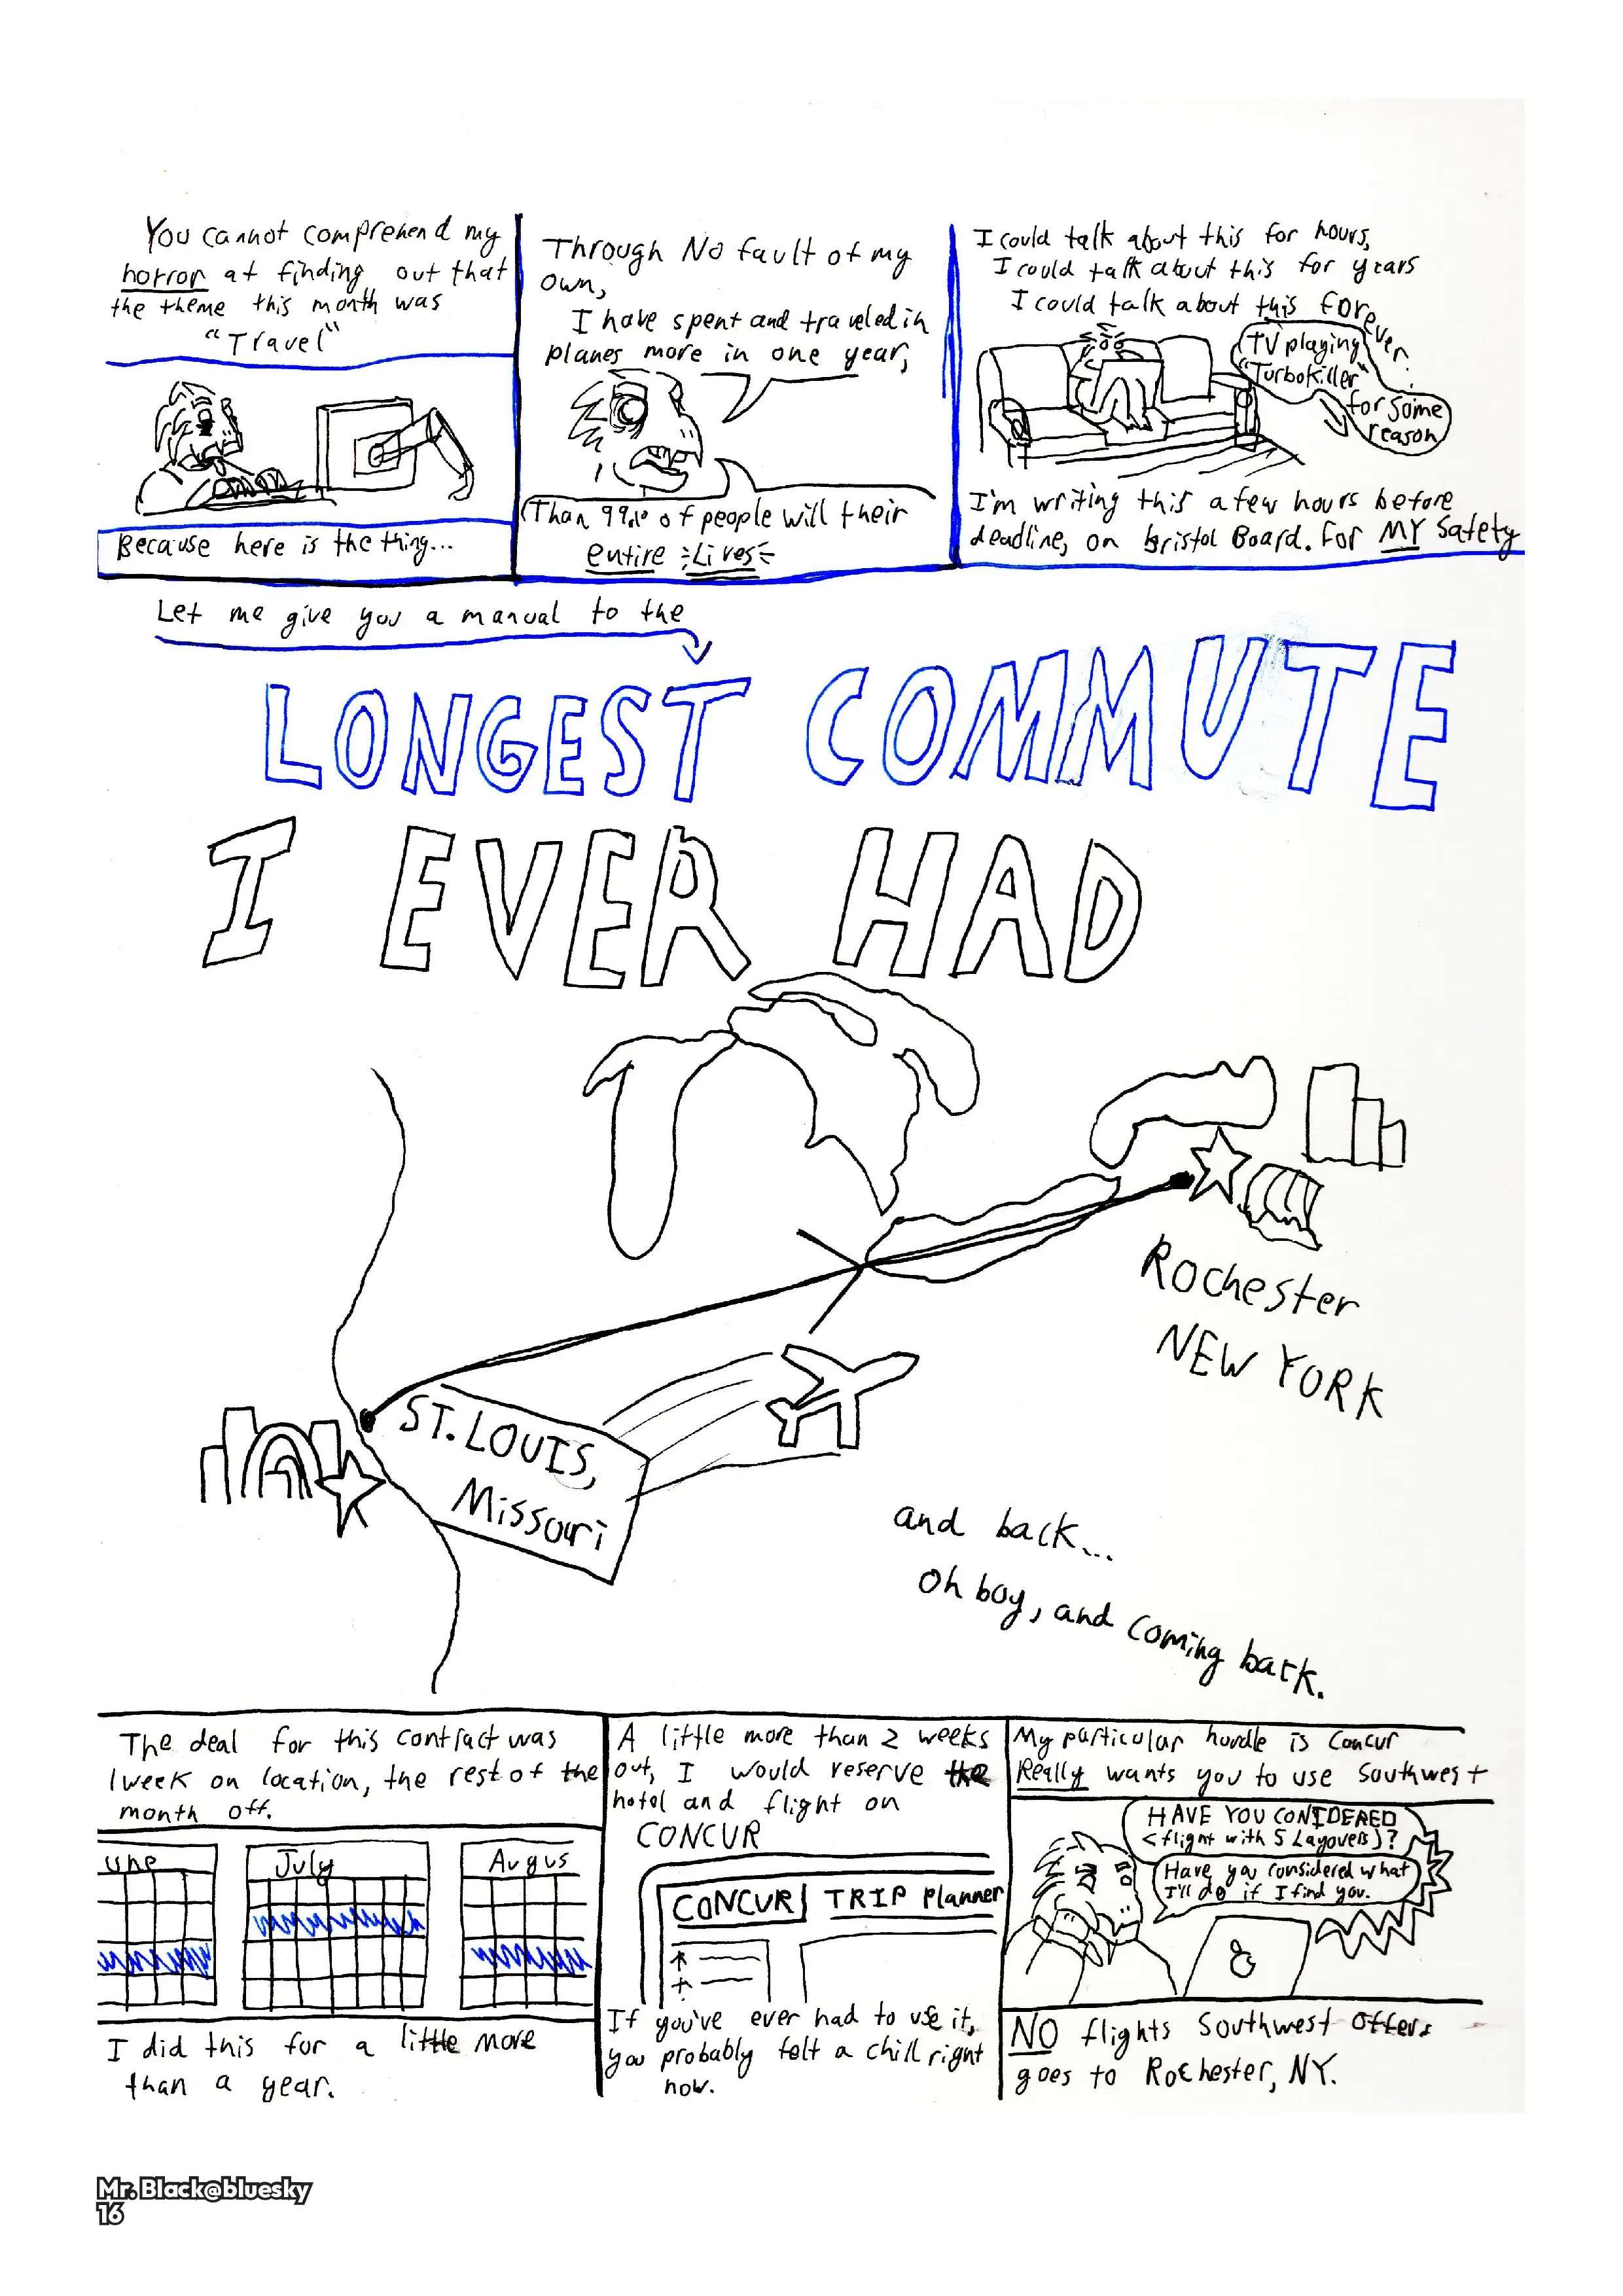 You cannot comprehend my
horror at finding out that
the theme this month was
"Travel"
Because here is the thing...
Through No fault of my
own,
I have spent and traveled in
planes more in one year,
(Than 99% of people will their
entire Lives
I could talk about this for hours,
I could talk about this for years
I could talk about this forever.
TV playing
"Turbokiller"
for some
reason
I'm writing this a few hours before
deadline, on bristol Board. For MY Safety
Let me give you a manual to the
LONGEST COMMUTE
I EVER HAD
Rochester
NEW YORK
ST. LOUIS,
Missouri
and back...
Oh boy, and coming back.
The deal for this contract was
1 week on location, the rest of the
month off.
une
July
Augus
I did this for a little more
than a year.
A little more than 2 weeks
out, I would reserve the
hotel and flight on
CONCUR
CONCUR TRIP Planner
If you've ever had to use it,
you probably felt a chill right
now.
My particular hurdle is Concur
Really wants you to use Southwest
HAVE YOU CONIDERED
<flight with 5 Layovers>?
Have you considered what
I'll do if I find you.
NO flights Southwest offers
goes to Rochester, NY.
Mr.Black@bluesky
16